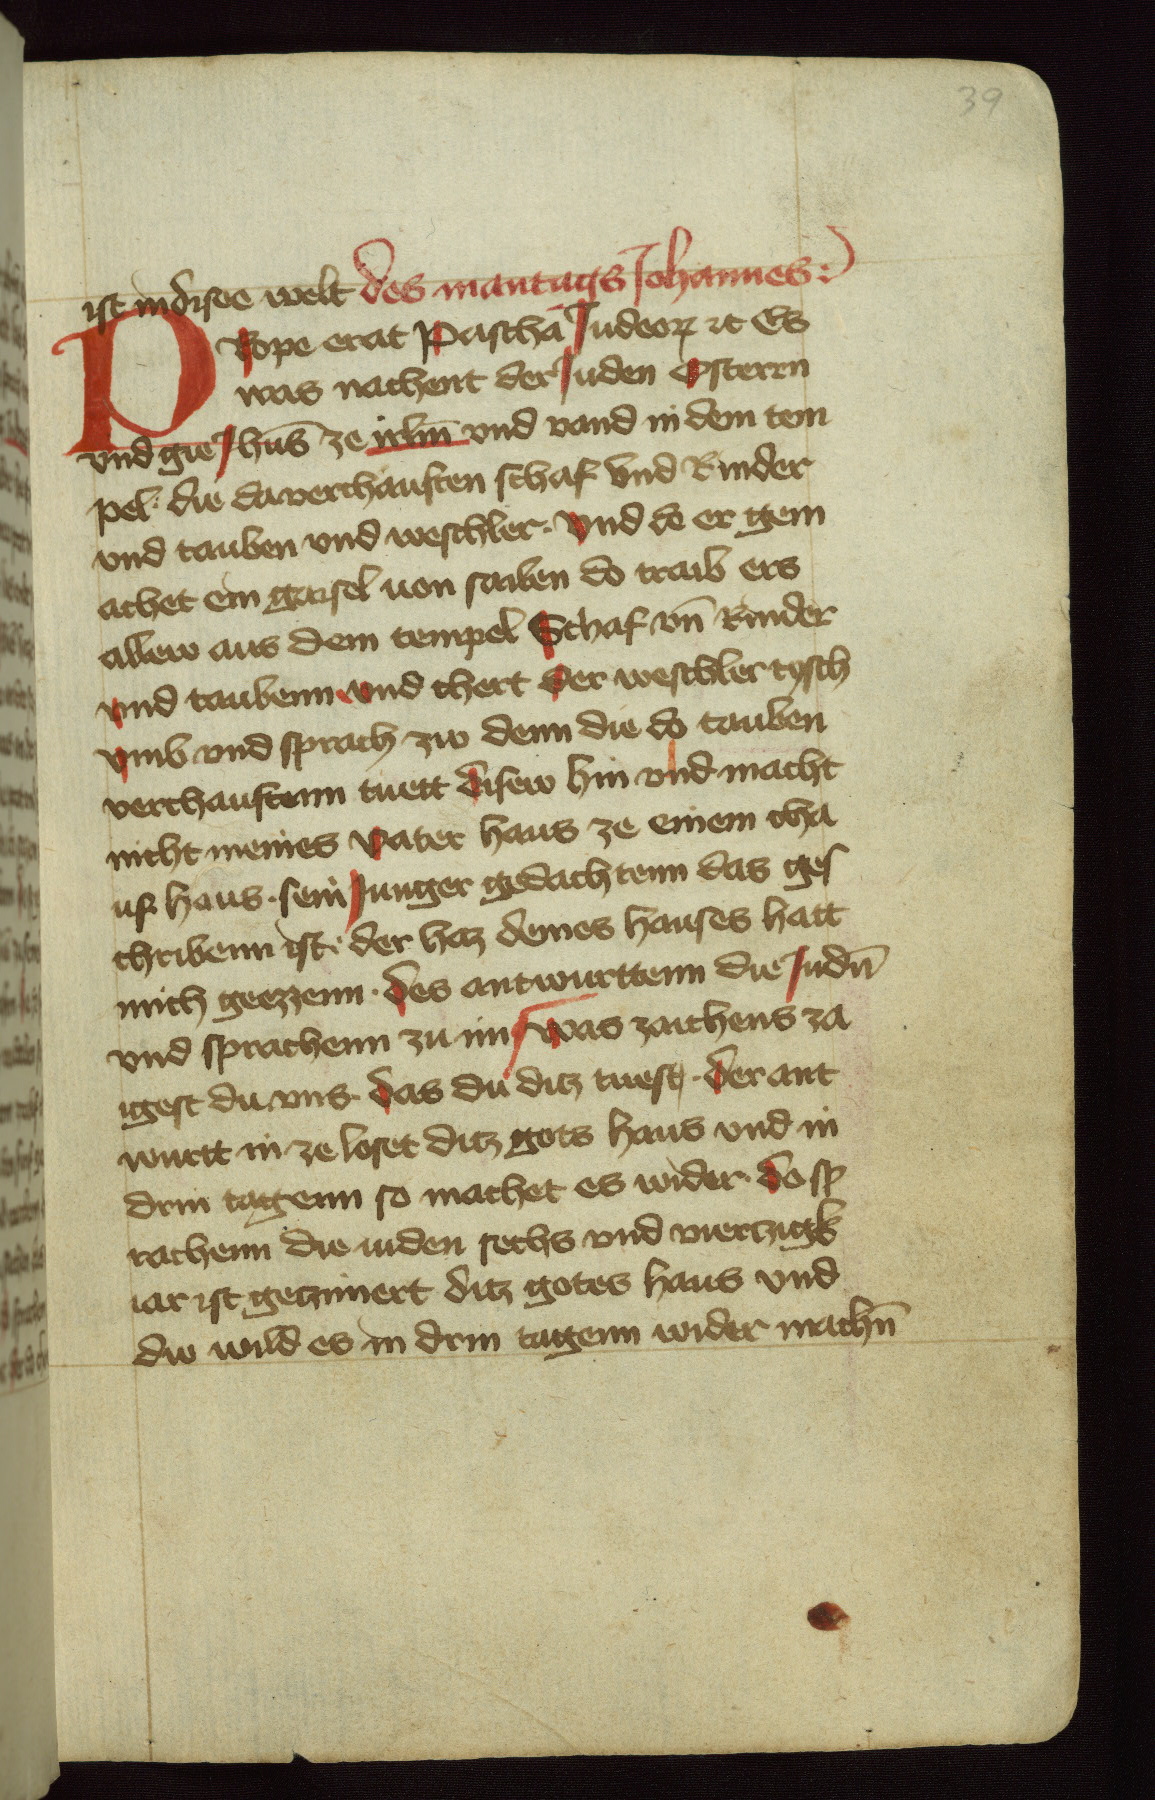 39
ist in diser welt des mantags Johannes :
PRope erat Pascha Judeoꝝ ⁊c Es
was nachent der Juden Osterrn
vnd gie Jhus̄ ze irlm̄ vnd vand in dem tem
pel· die da verchauften schaf vnd Rinder
vnd tauben vnd weschler· vnd do er gem
achet ein gaisel uon sailen do traib ers
allew aus dem tempel Schaf vn̄ Rinder
vnd taubenn vnd chert der weschler tysch
vmb vnd sprach zw denn die do tauben
verchauftenn tuett disew hin vnd macht
nicht meines vater haus ze einem cha
uf haus· sein Junger gedachtenn das ges
chribenn ist· der haz deines hauses hatt
mich geezzenn· des antwurttenn die Judn̄
vnd sprachenn zu im was zaichens za
igest du vns· das du ditz tuest· der ant
wurtt in ze loset ditz gots haus vnd in
drin tagenn so machet es wider· do sp
rachenn die iuden sechs vnd vierczigk
iar ist geczimert ditz gotes haus vnd
dw wild es in drin tagenn wider machn̄